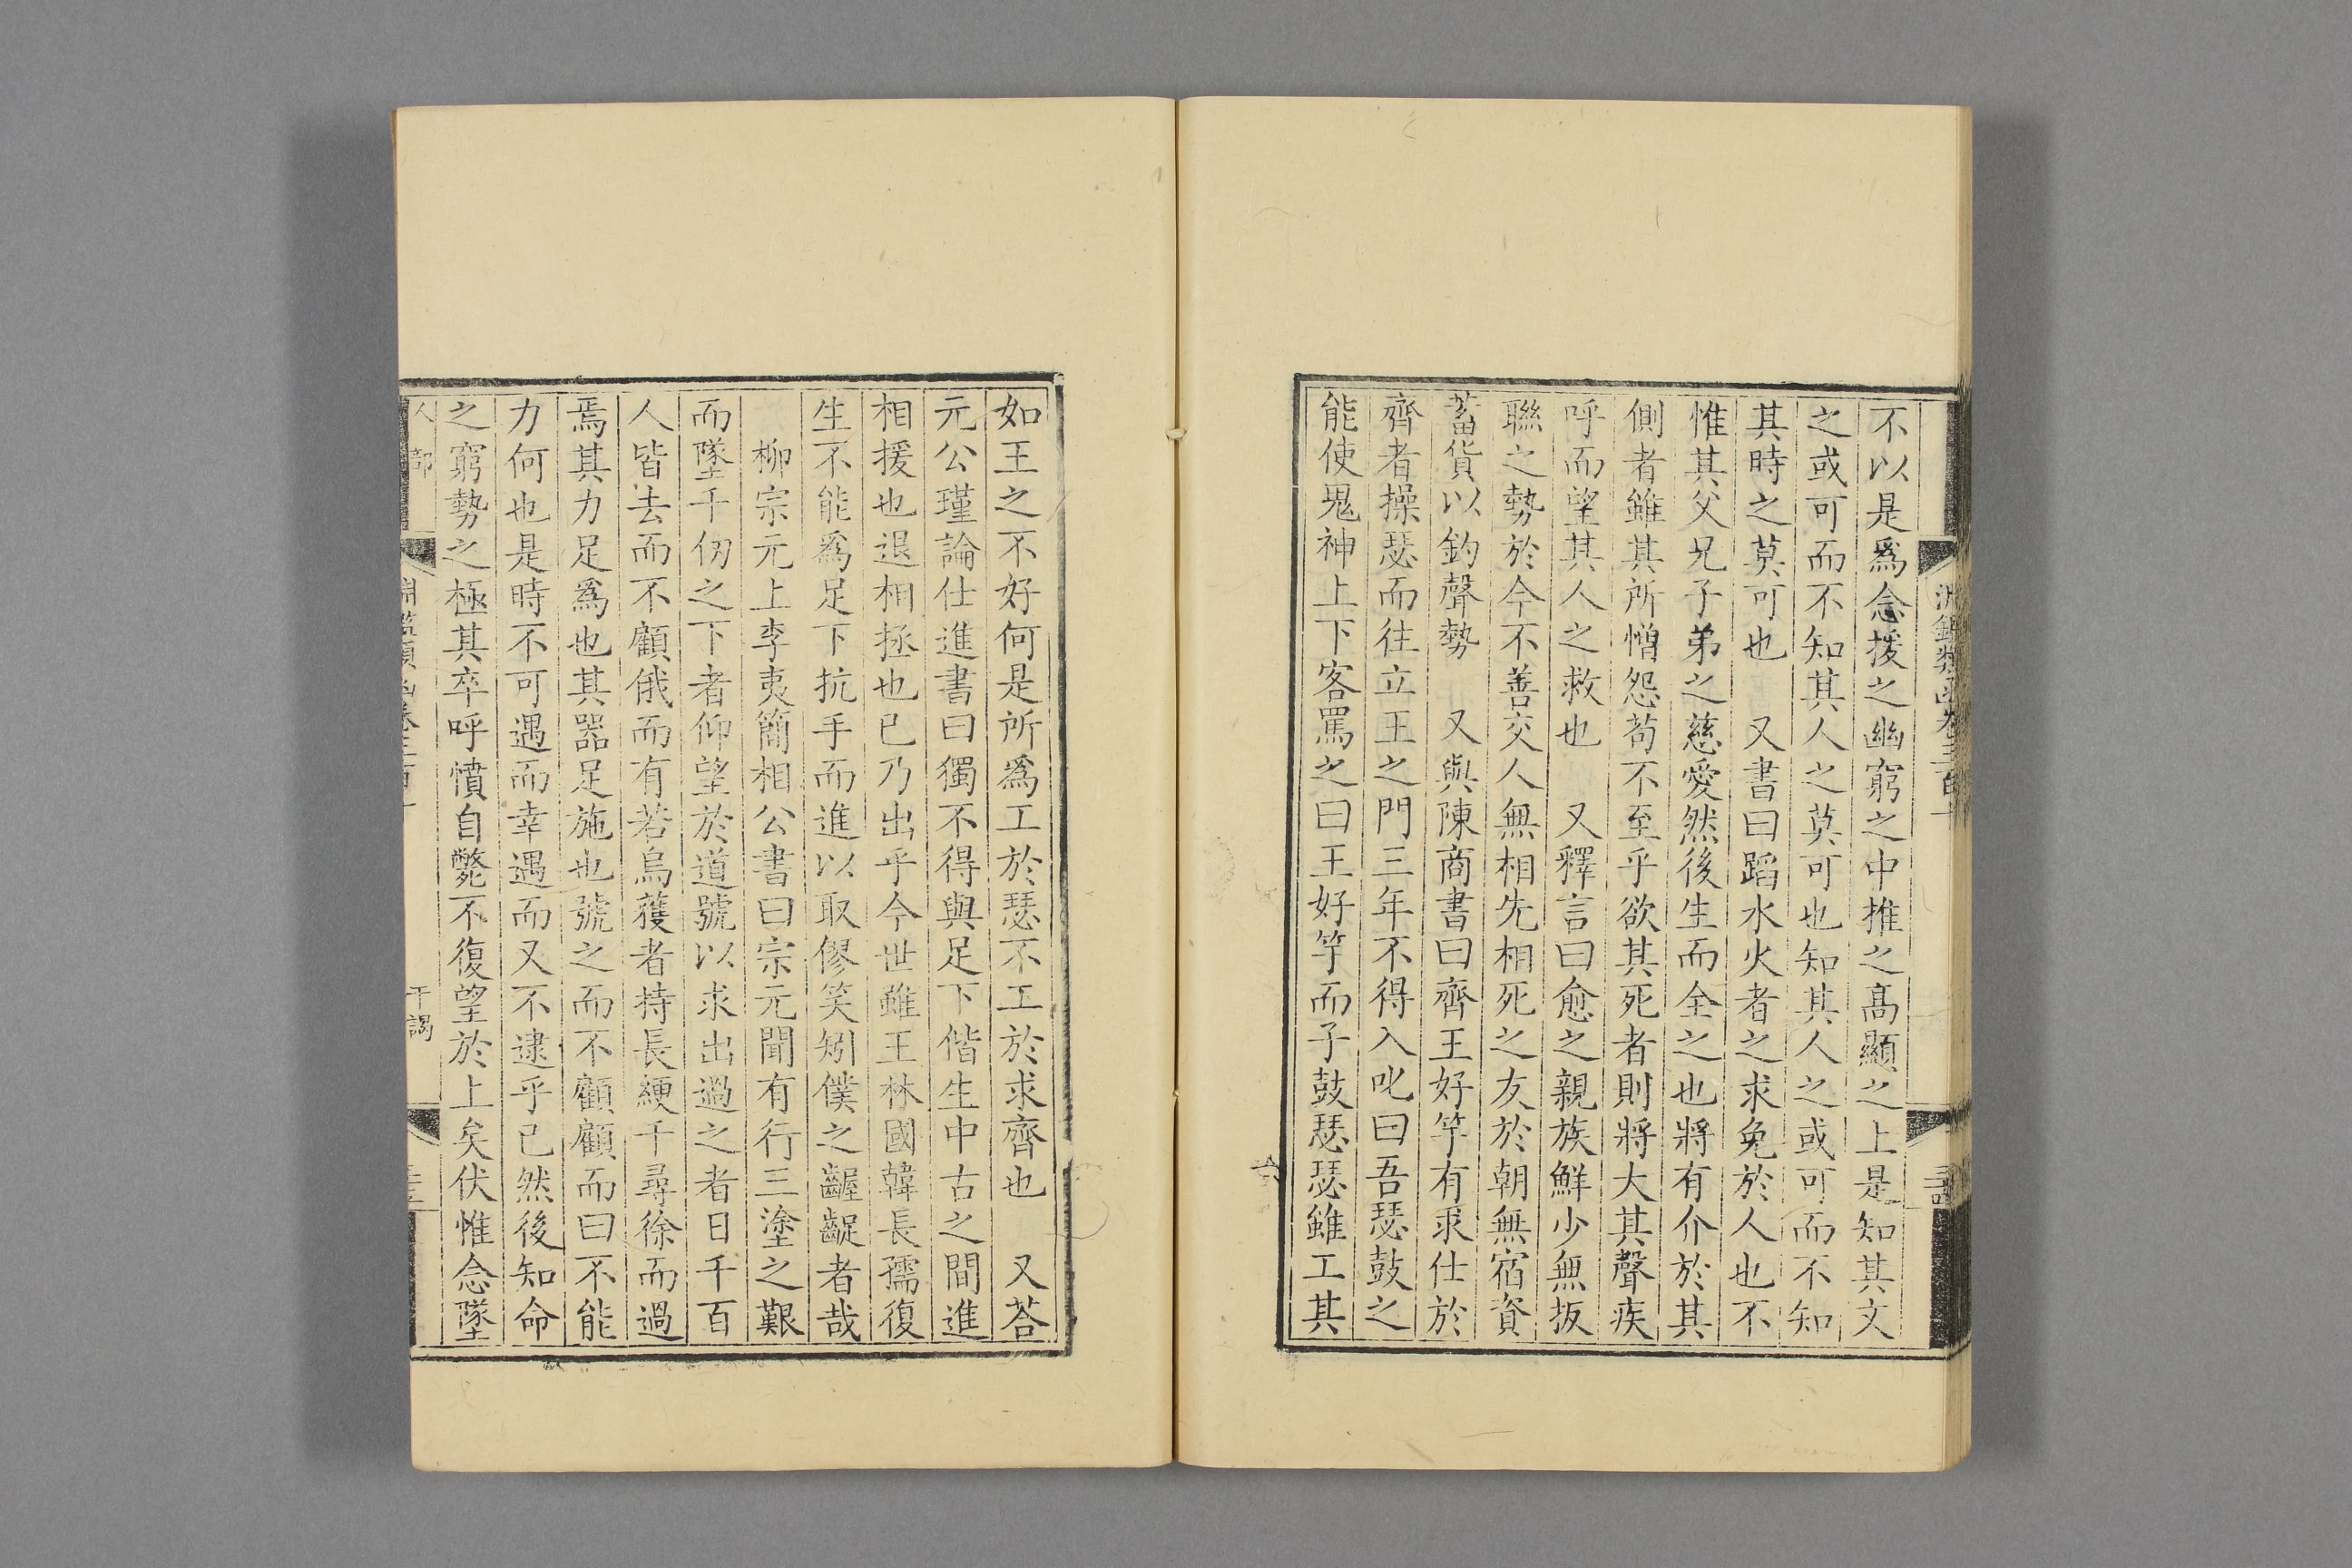 不以是爲念援之幽窮之中推之髙顯之上是知其文
之或可而不知其人之莫可也知其人之或可而不知
其時之莫可也　又書曰蹈水火者之求免於人也不
惟其父兄子弟之慈愛然後生而全之也將有介於其
側者雖其所憎怨茍不至乎欲其死者則將大其聲疾
呼而望其人之救也　又釋言曰愈之親族鮮少無扳
聯之勢於今不善交人無相先相死之友於朝無宿資
蓄貨以釣聲勢　又與陳商書曰齊王好竽有求仕於
齊者操瑟而往立王之門三年不得入叱曰吾瑟鼓之
能使鬼神上下客罵之曰王好竽而子鼓瑟瑟雖工其
如王之不好何是所爲工於瑟不工於求齊也　又荅
元公瑾論仕進書曰獨不得與足下偕生中古之間進
相援也退相拯也已乃出乎今世雖王林國韓長孺復
生不能爲足下抗手而進以取僇笑矧僕之齷齪者哉
柳宗元上李夷簡相公書曰宗元聞有行三塗之艱
而墜千仞之下者仰望於道號以求出過之者日千百
人皆去而不顧俄而有若烏獲者持長綆千尋徐而過
焉其力足爲也其器足施也號之而不顧顧而曰不能
力何也是時不可遇而幸遇而又不逮乎已然後知命
之窮勢之極其卒呼憤自斃不復望於上矣伏惟念墜
人部
淵鑑類函卷三百十
干謁